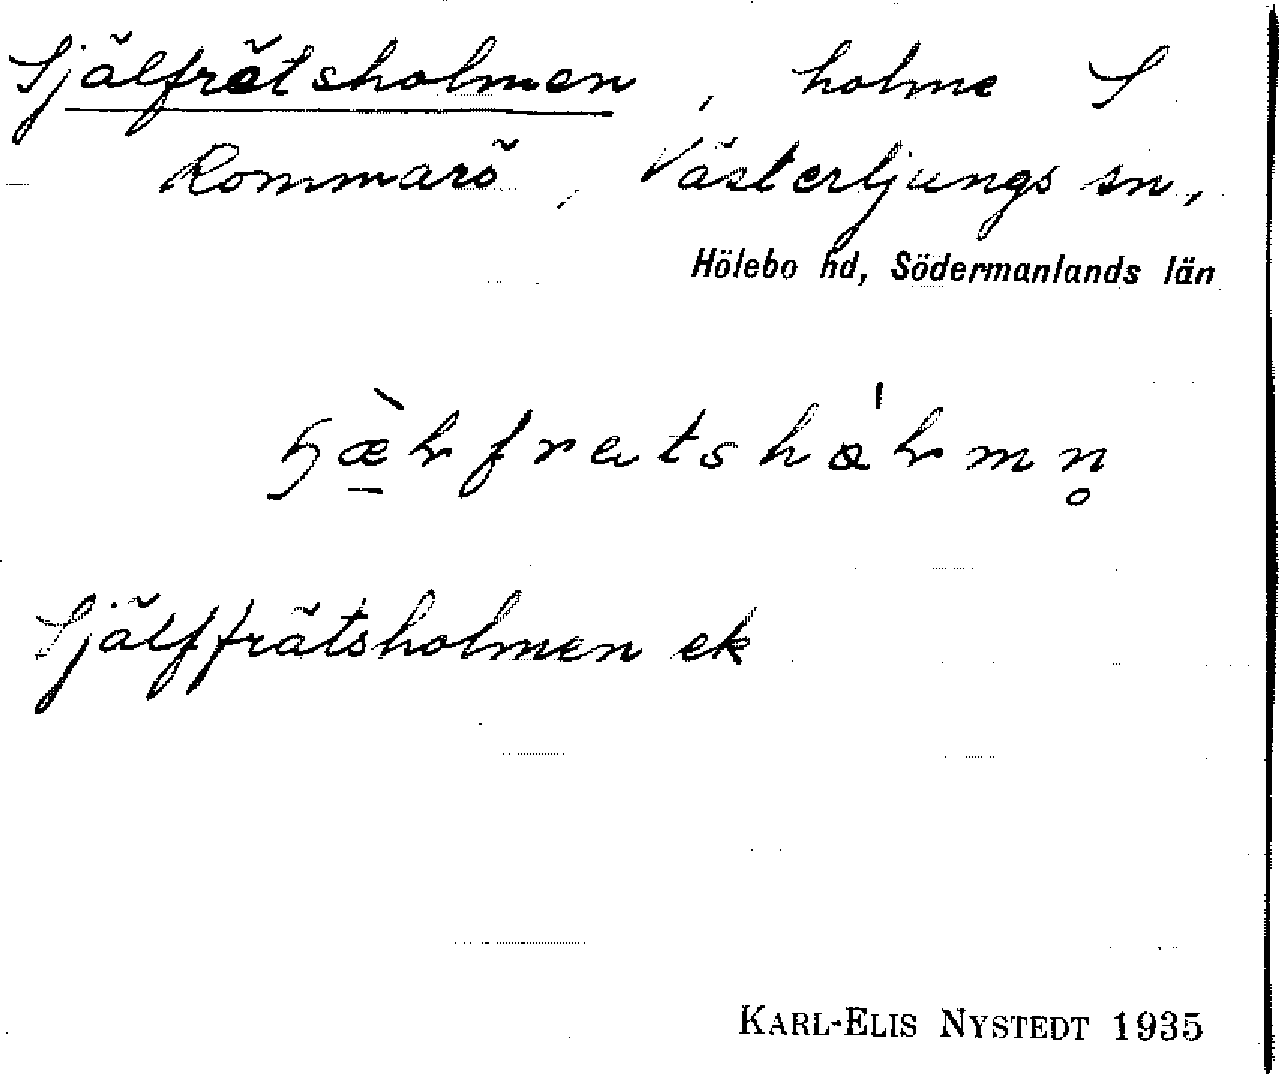 Själfrätsholmen, holme S
Rommarö, Västerljungs sn,
Hölebo hd, Södermanlands län
Själffrätsholmen ek
KARL-ELIS NYSTEDT 1935